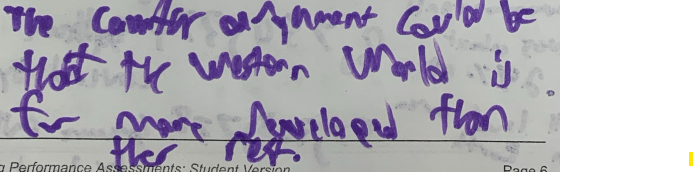 The Counter argument Could be
that the Western World is
far more Developed than
ther rest.
g Performance Assessments: Student Version
Page 6